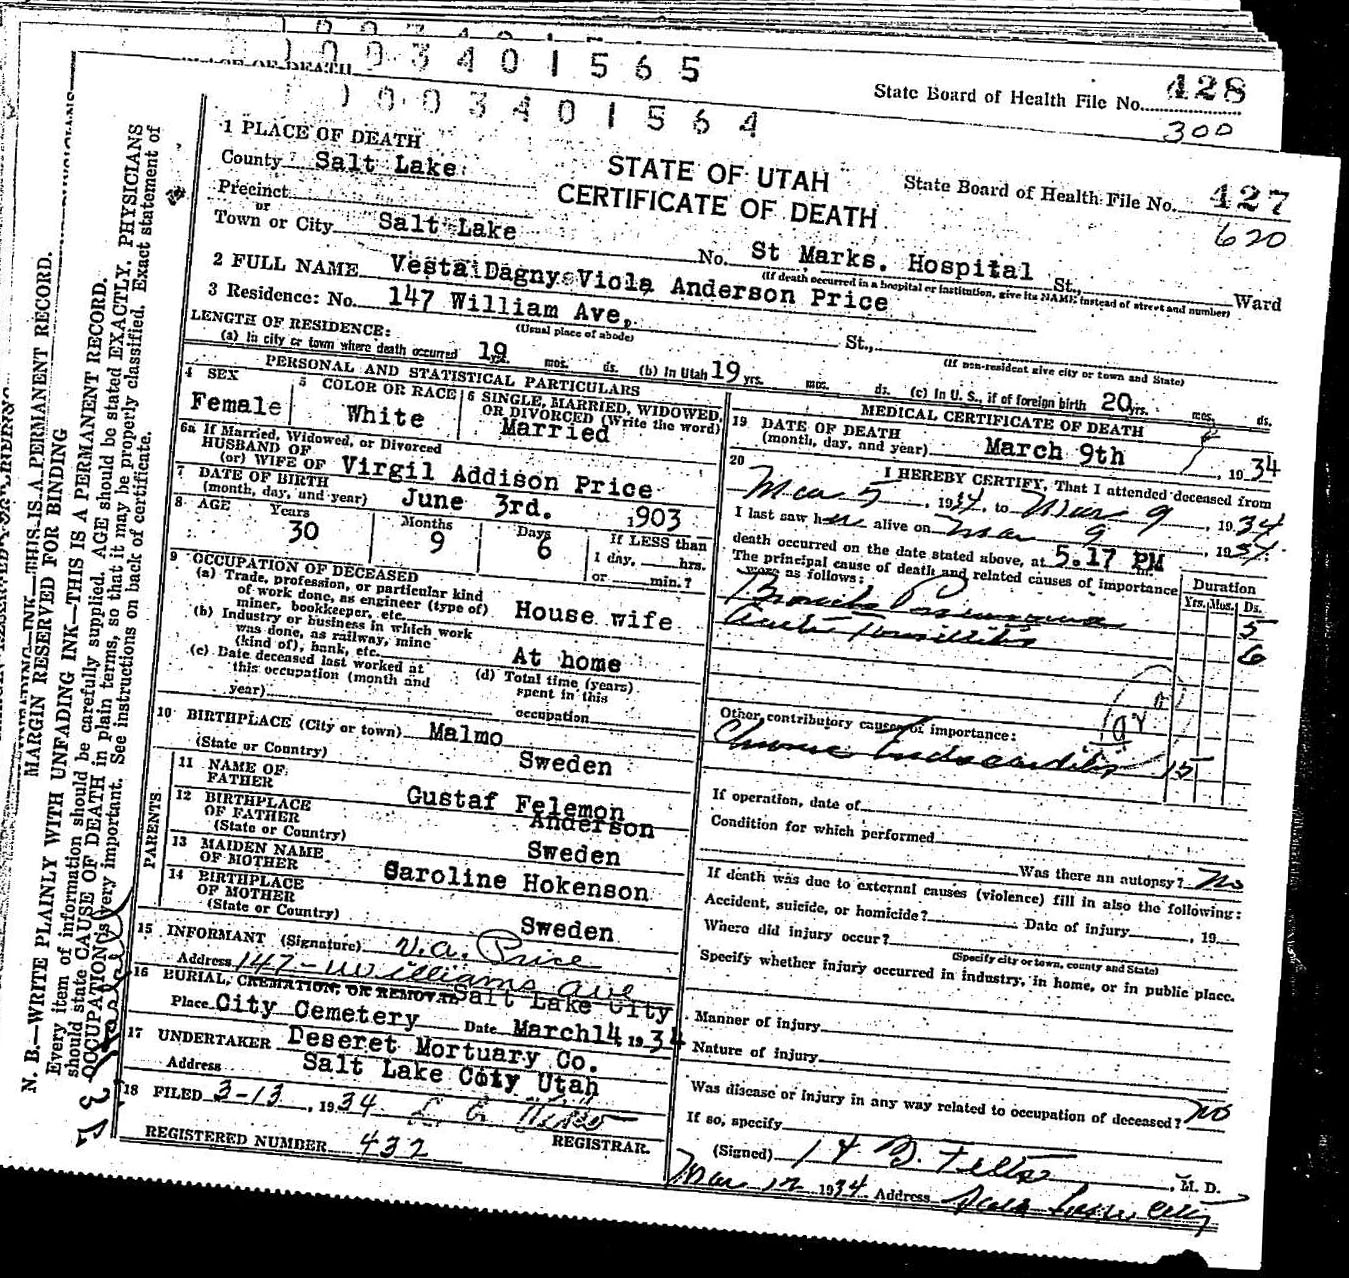 1003401565
PLACE OF DEATH
State Board of Health File No. 428
300
1003401564
1 PLACE OF DEATH
County Salt Lake
STATE OF UTAH
CERTIFICATE OF DEATH
State Board of Health File No. 427
620
Precinct
or
Town or City Salt Lake
No. St Marks. Hospital St., Ward
(If death occurred in a hospital or institution, give its NAME instead of street and number)
2 FULL NAME Vesta Dagny Viola Anderson Price
3 Residence: No. 147 William Ave, St.,
(Usual place of abode)
(If non-resident give city or town and State)
LENGTH OF RESIDENCE:
(a) In city or town where death occurred 19 yrs. mos. ds. (b) In Utah 19 yrs. mos. ds. (c) In U. S., if of foreign birth 20 yrs. mos. ds.
PERSONAL AND STATISTICAL PARTICULARS
4 SEX
Female
5 COLOR OR RACE
White
6 SINGLE, MARRIED, WIDOWED, OR DIVORCED (Write the word)
Married
6a If Married, Widowed, or Divorced
HUSBAND OF
(or) WIFE OF Virgil Addison Price
7 DATE OF BIRTH
(month, day, and year) June 3rd. 1903
8 AGE Years Months Days If LESS than
30 9 6 1 day, hrs.
or min.?
9 OCCUPATION OF DECEASED
(a) Trade, profession, or particular kind of work done, as engineer (type of) miner, bookkeeper, etc. House wife
(b) Industry or business in which work was done, as railway, mine (kind of), bank, etc. At home
(c) Date deceased last worked at this occupation (month and year)
(d) Total time (years) spent in this occupation
10 BIRTHPLACE (City or town) Malmo
(State or Country) Sweden
PARENTS
11 NAME OF FATHER Gustaf Felemon Anderson
12 BIRTHPLACE OF FATHER
(State or Country) Sweden
13 MAIDEN NAME OF MOTHER Saroline Hokenson
14 BIRTHPLACE OF MOTHER
(State or Country) Sweden
15 INFORMANT (Signature) V. A. Price
Address 147 - Williams Ave
Salt Lake City
16 BURIAL, CREMATION, OR REMOVAL
Place City Cemetery Date March 14 1934
17 UNDERTAKER Deseret Mortuary Co.
Address Salt Lake City Utah
18 FILED 3-13, 1934
REGISTRAR.
REGISTERED NUMBER 432
MEDICAL CERTIFICATE OF DEATH
19 DATE OF DEATH
(month, day, and year) March 9th, 1934
20 I HEREBY CERTIFY, That I attended deceased from
Mar 5, 1934, to Mar 9, 1934
I last saw her alive on Mar 9, 1934.
death occurred on the date stated above, at 5.17 PM
The principal cause of death and related causes of importance were as follows:
Duration
Yrs. Mos. Ds.
Broncho Pneumonia 5
Acute Tonsillitis 6
Other contributory causes of importance:
Chronic Endocarditis 15
If operation, date of
Condition for which performed
Was there an autopsy? No
If death was due to external causes (violence) fill in also the following:
Accident, suicide, or homicide? Date of injury, 19
Where did injury occur?
(Specify city or town, county and State)
Specify whether injury occurred in industry, in home, or in public place.
Manner of injury
Nature of injury
Was disease or injury in any way related to occupation of deceased? No
If so, specify
(Signed) M. D.
Mar 12 1934 Address Salt Lake City
MARGIN RESERVED FOR BINDING
N. B.—WRITE PLAINLY WITH UNFADING INK—THIS IS A PERMANENT RECORD.
Every item of information should be carefully supplied. AGE should be stated EXACTLY. PHYSICIANS
should state CAUSE OF DEATH in plain terms, so that it may be properly classified. Exact statement of
OCCUPATION is very important. See instructions on back of certificate.
THIS IS A PERMANENT RECORD.